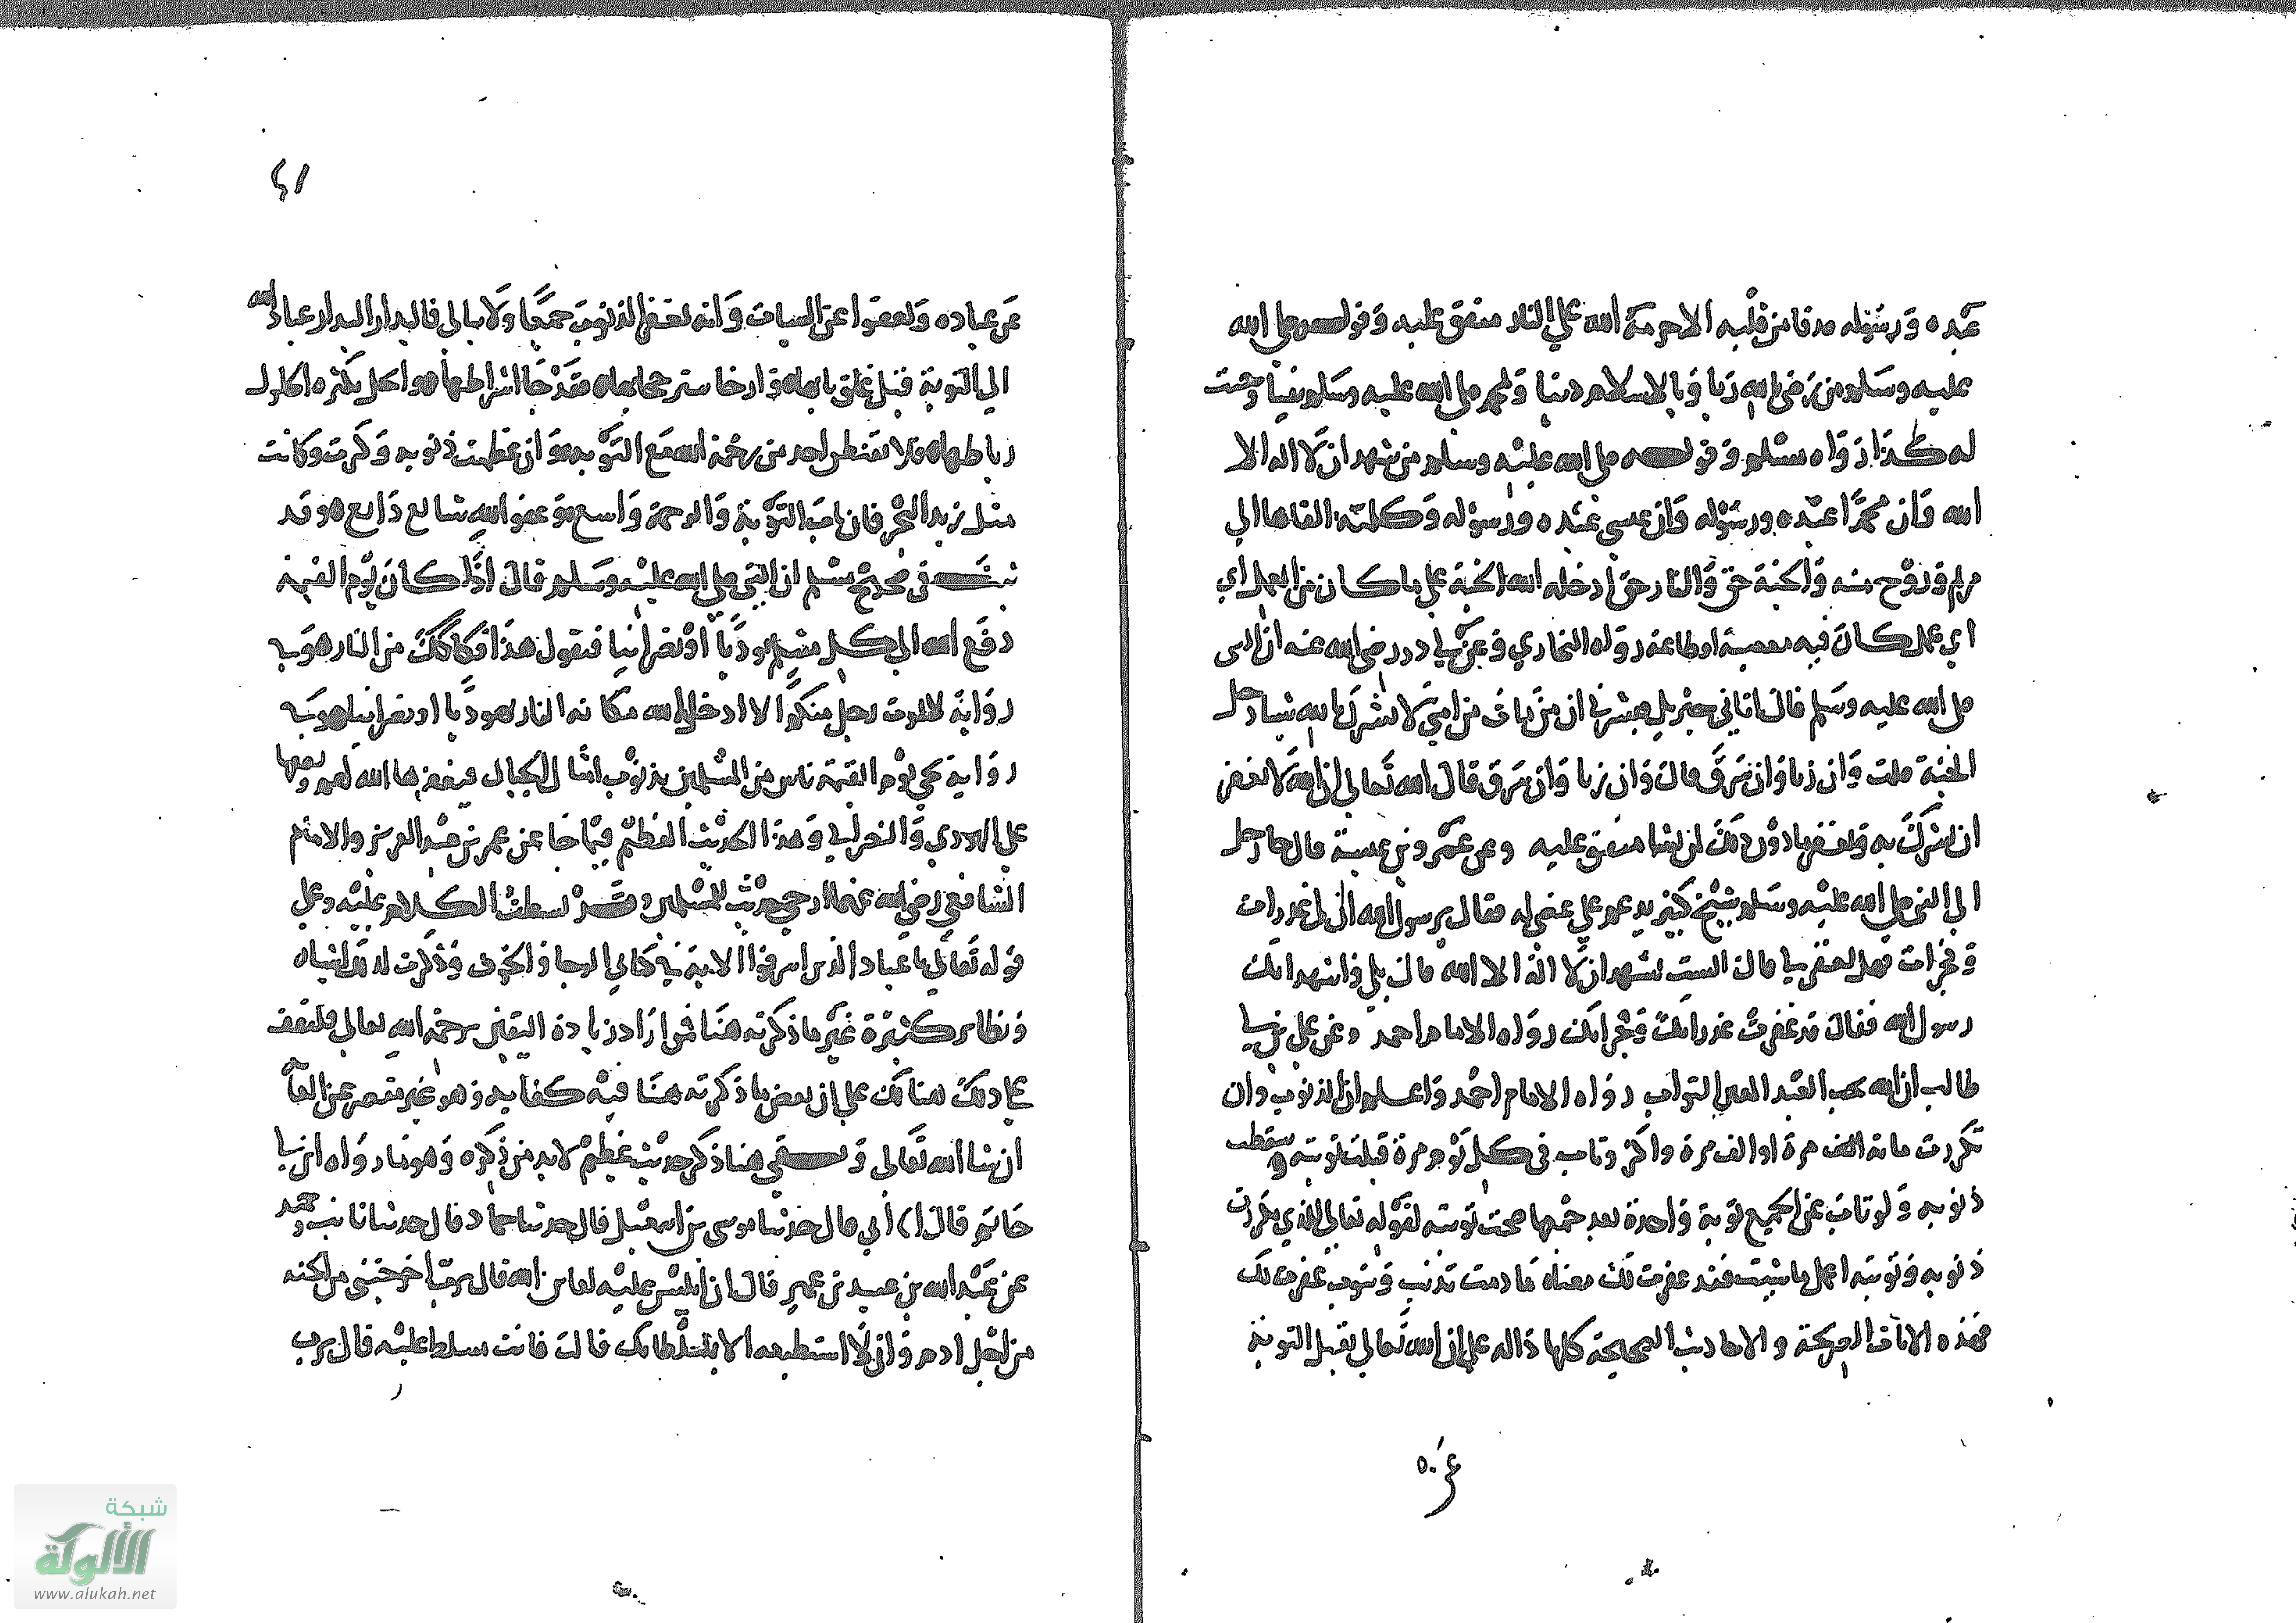 عبده ورسوله صدقا من قلبه الا حرمه الله على النار متفق عليه وقوله صلى الله
عليه وسلم من رضي بالله ربا وبالاسلام دينا وبمحمد صلى الله عليه وسلم نبيا وجبت
له كذا رواه مسلم وقوله صلى الله عليه وسلم من شهد ان لا اله الا
الله وان محمدا عبده ورسوله وان عيسى عبده ورسوله وكلمته القاها الي
مريم وروح منه والجنة حق والنار حق ادخله الله الجنة على ما كان من العمل اي
اي عمل كان فيه معصية او طاعة رواه البخاري وعن ابي ذر رضي الله عنه ان النبي
صلى الله عليه وسلم قال اتاني جبريل فبشرني ان من مات من امتي لا يشرك بالله شيا دخل
الجنة قلت وان زنا وان سرق قال وان زنا وان سرق قال الله تعالى ان الله لا يغفر
ان يشرك به ويغفر ما دون ذلك لمن يشا متفق عليه وعن عمرو بن عبسة قال جا رجل
الي النبي صلى الله عليه وسلم شيخ كبير يدعم على عصى له فقال يرسول الله ان لي غدرات
وفجرات فهل يغفر لي قال الست تشهد ان لا اله الا الله قال بلى واشهد انك
رسول الله فقال قد غفرت غدراتك وفجراتك رواه الامام احمد وعن علي بن ابي
طالب ان الله يحب العبد المفتن التواب رواه الامام احمد واعلم ان الذنوب وان
تكررت مائة الف مرة او الف مرة واكثر وتاب في كل يوم مرة قبلت توبته وسقطت
ذنوبه ولو تاب عن الجميع توبة واحدة بعد جمعها صحت توبته لقوله تعالى للذي تكررت
ذنوبه وتوبته اعمل ما شيت فقد غفرت لك معناه ما دمت تذنب وتتوب غفرت لك
فهذه الايات الصريحة والاحاديث الصحيحة كلها دالة على ان الله تعالى يقبل التوبة
٥٠٤
٤١
عن عباده ويعفوا عن السيات وانه يغفر الذنوب جميعا ولا يبالي فالبدار البدار عباد الله
الي التوبة قبل غلق بابها وارخا ستر حجابها فقد جا اشراطها
فلا يقنطن احد من رحمة الله مع التوبة وان عظمت ذنوبه وكثرت وكانت
مثل زبد البحر فان باب التوبة والرحمة واسع وعفو الله شايع ذايع وقد
ثبت في صحيح مسلم ان النبي صلى الله عليه وسلم قال اذا كان يوم القيمة
دفع الله الي كل مسلم يهوديا او نصرانيا فيقول هذا فكاكك من النار وفي
رواية لا يموت رجل منكم الا ادخل الله مكانه النار يهوديا او نصرانيا وفي
رواية يجي يوم القيمة ناس من المسلمين بذنوب امثال الجبال فيغفرها الله لهم ويضعها
على اليهود والنصارى وهذا الحديث العظيم فيما جا عن عمر بن عبد العزيز والامام
الشافعي رضي الله عنهما ارجى حديث للمسلمين وقد بسطت الكلام عليه وعلى
قوله تعالى يا عبادي الذين اسرفوا الاية في كتابي الرجا والخوف وذكرت لذلك اشباه
ونظاير كثيرة غير ما ذكرته هنا فمن اراد زيادة اليقين برحمة الله تعالى فليقف
على ذلك هنالك على ان بعض ما ذكرته هنا فيه كفاية وهو غير مقصر عن الغاية
ان شا الله تعالى وبقي هنا ذكر حديث عظيم لابد من ذكره وهو ما رواه ابن ابي
حاتم قال ابي قال حدثنا موسى بن اسمعيل قال حدثنا حماد قال حدثنا ثابت وحميد
عن عبد الله بن عبيد بن عمير قال ان ابليس عليه لعاين الله قال يرب اخرجتني من الجنة
من اجل ادم واني لا استطيعه الا بسلطانك قال فانت مسلط عليه قال يرب
شبكة
الألوكة
www.alukah.net